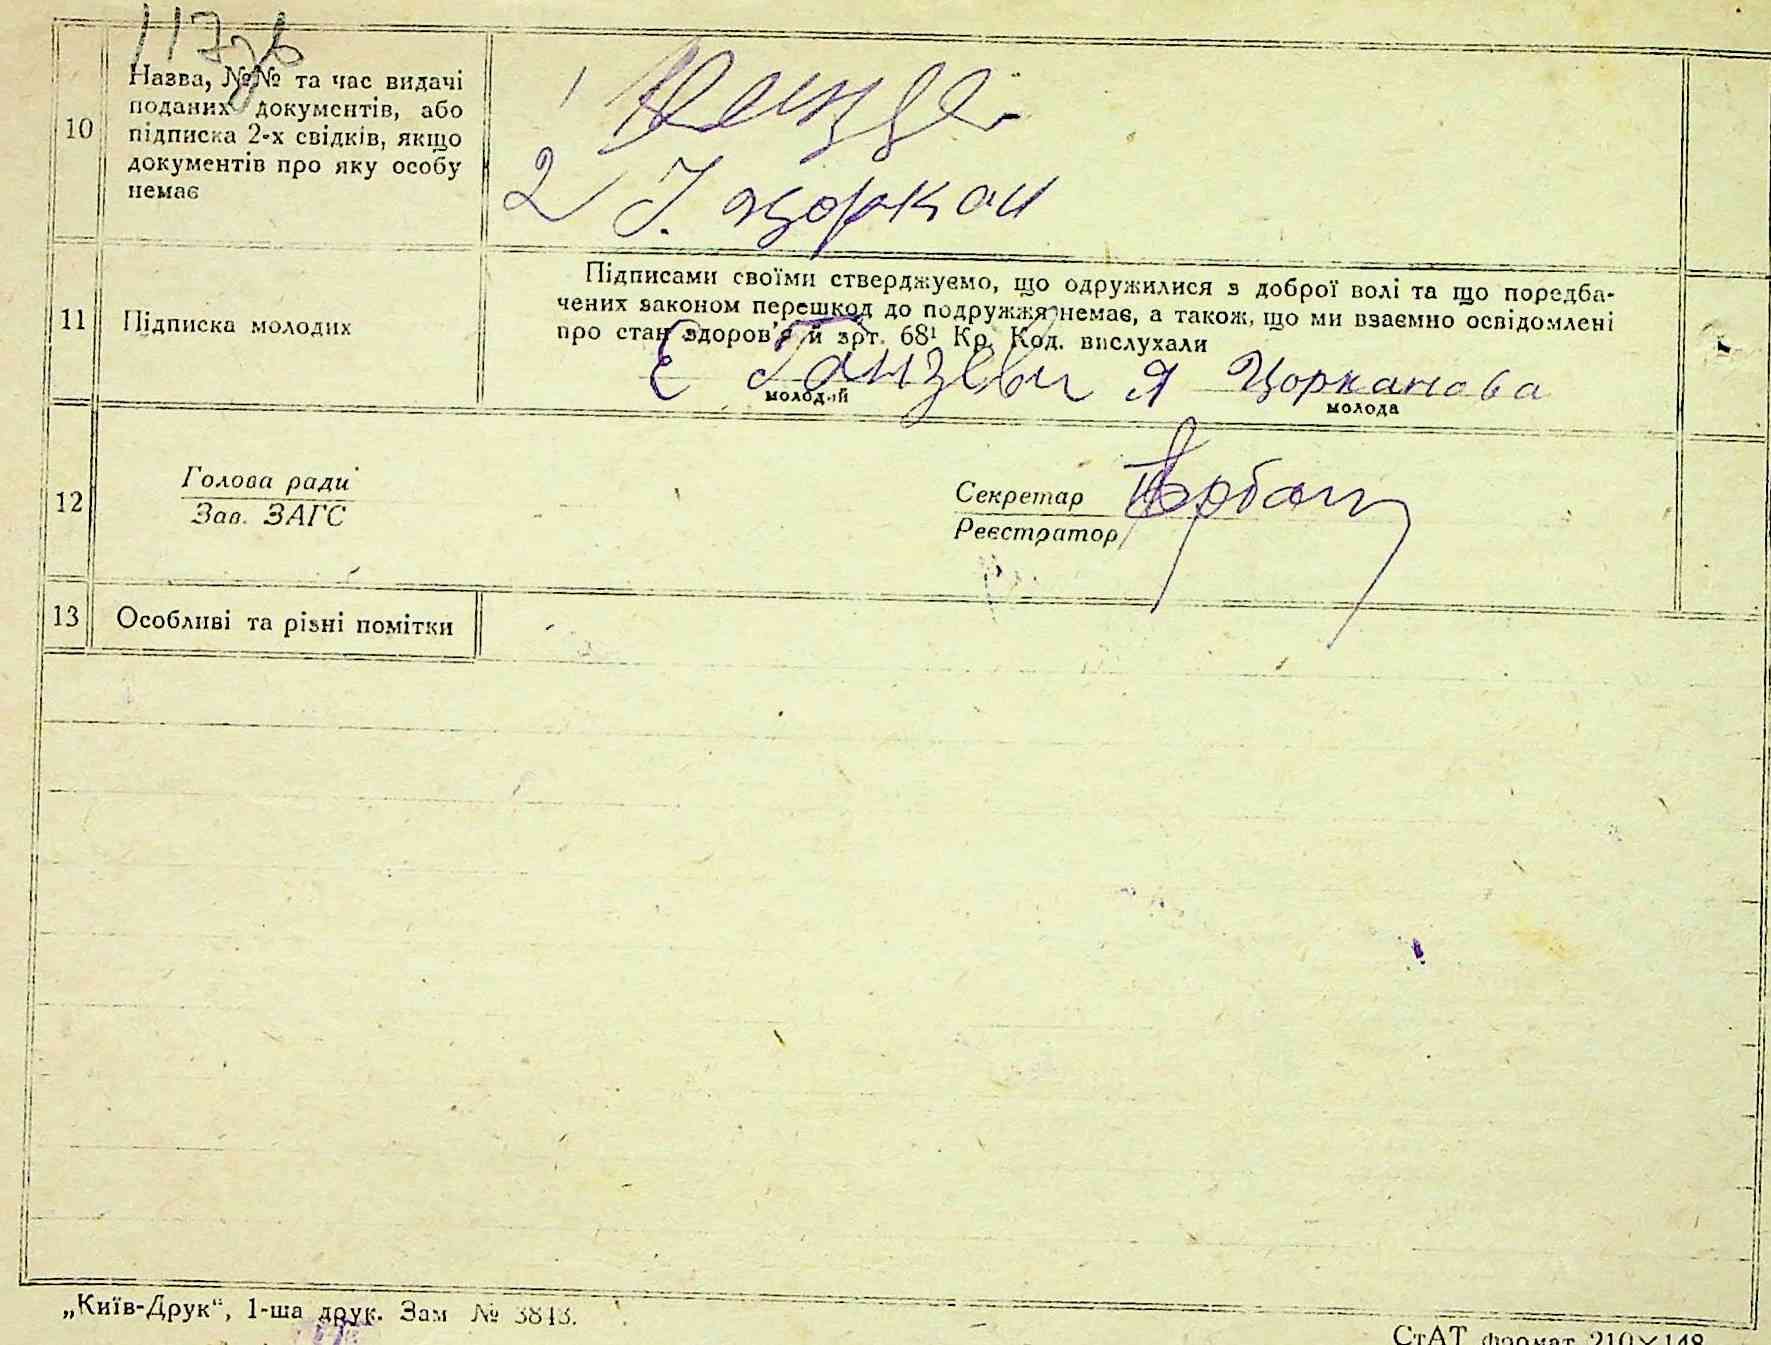 117зв
10
Назва, №№ та час видачі
поданих документів, або
підписка 2-х свідків, якщо
документів про яку особу
немає
1
2 І. Цоркан
11
Підписка молодих
Підписами своїми стверджуємо, що одружилися з доброї волі та що поредба-
чених законом перешкод до подружжя немає, а також, що ми взаємно освідомлені
про стан здоров'я й арт. 68¹ Кр. Код. вислухали
Є Ганзеви Я Цорканова
молодий молода
12
Голова ради
Зав. ЗАГС
Секретар
Реєстратор
13
Особливі та різні помітки
„Київ-Друк“, 1-ша друк. Зам № 3843.
СтАТ формат 210×148